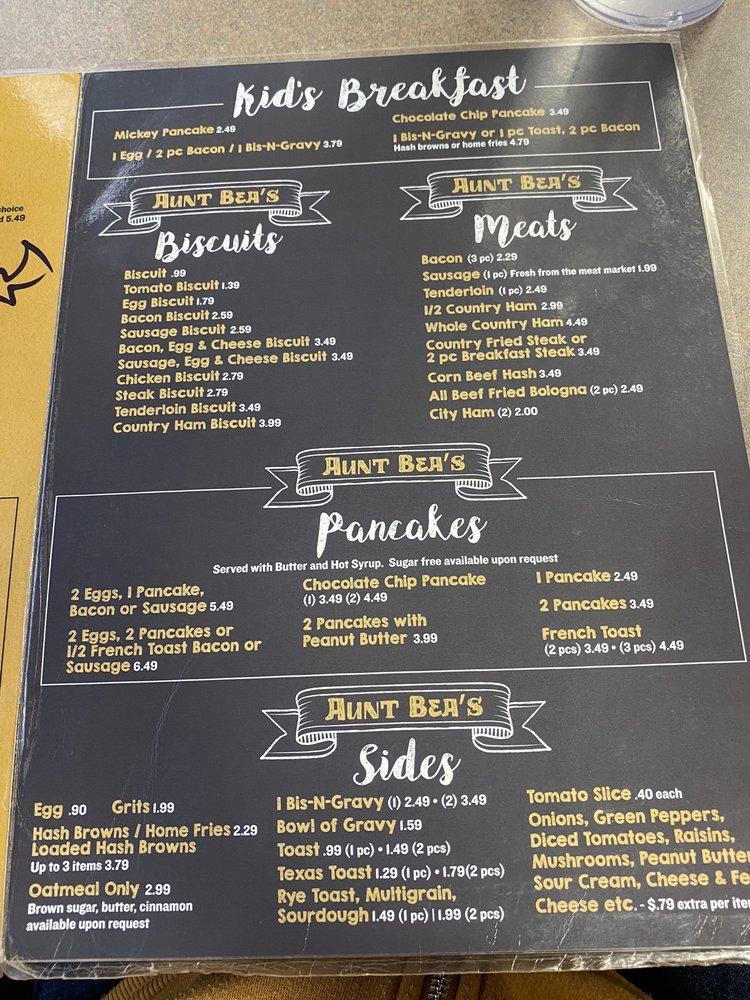 choice
d 5.49
Kid's Breakfast
Mickey Pancake 2.49
1 Egg / 2 pc Bacon / 1 Bis-N-Gravy 3.79
Chocolate Chip Pancake 3.49
1 Bis-N-Gravy or 1 pc Toast, 2 pc Bacon
Hash browns or home fries 4.79
AUNT BEA'S
Biscuits
Biscuit .99
Tomato Biscuit 1.39
Egg Biscuit 1.79
Bacon Biscuit 2.59
Sausage Biscuit 2.59
Bacon, Egg & Cheese Biscuit 3.49
Sausage, Egg & Cheese Biscuit 3.49
Chicken Biscuit 2.79
Steak Biscuit 2.79
Tenderloin Biscuit 3.49
Country Ham Biscuit 3.99
AUNT BEA'S
Meats
Bacon (3 pc) 2.29
Sausage (1 pc) Fresh from the meat market 1.99
Tenderloin (1 pc) 2.49
1/2 Country Ham 2.99
Whole Country Ham 4.49
Country Fried Steak or
2 pc Breakfast Steak 3.49
Corn Beef Hash 3.49
All Beef Fried Bologna (2 pc) 2.49
City Ham (2) 2.00
AUNT BEA'S
Pancakes
Served with Butter and Hot Syrup. Sugar free available upon request
2 Eggs, 1 Pancake,
Bacon or Sausage 5.49
2 Eggs, 2 Pancakes or
1/2 French Toast Bacon or
Sausage 6.49
Chocolate Chip Pancake
(1) 3.49 (2) 4.49
2 Pancakes with
Peanut Butter 3.99
1 Pancake 2.49
2 Pancakes 3.49
French Toast
(2 pcs) 3.49 • (3 pcs) 4.49
AUNT BEA'S
Sides
Egg .90 Grits 1.99
Hash Browns / Home Fries 2.29
Loaded Hash Browns
Up to 3 items 3.79
Oatmeal Only 2.99
Brown sugar, butter, cinnamon
available upon request
1 Bis-N-Gravy (1) 2.49 • (2) 3.49
Bowl of Gravy 1.59
Toast .99 (1 pc) • 1.49 (2 pcs)
Texas Toast 1.29 (1 pc) • 1.79 (2 pcs)
Rye Toast, Multigrain,
Sourdough 1.49 (1 pc) | 1.99 (2 pcs)
Tomato Slice .40 each
Onions, Green Peppers,
Diced Tomatoes, Raisins,
Mushrooms, Peanut Butter
Sour Cream, Cheese & Fe
Cheese etc. - $.79 extra per item